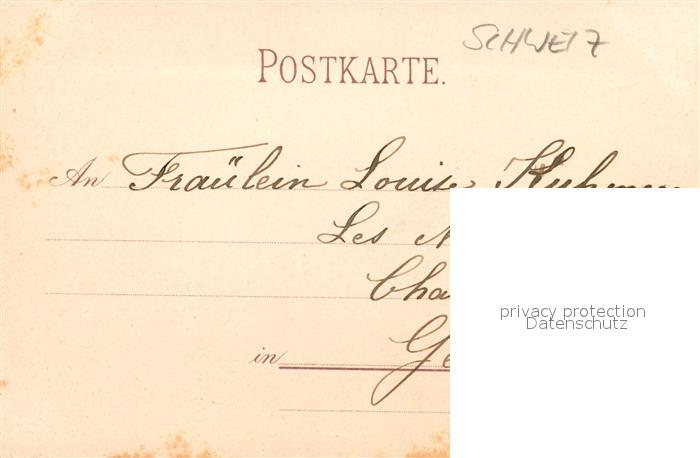 SCHWEIZ
POSTKARTE.
An Fräulein Louise
Les
in
privacy protection
Datenschutz